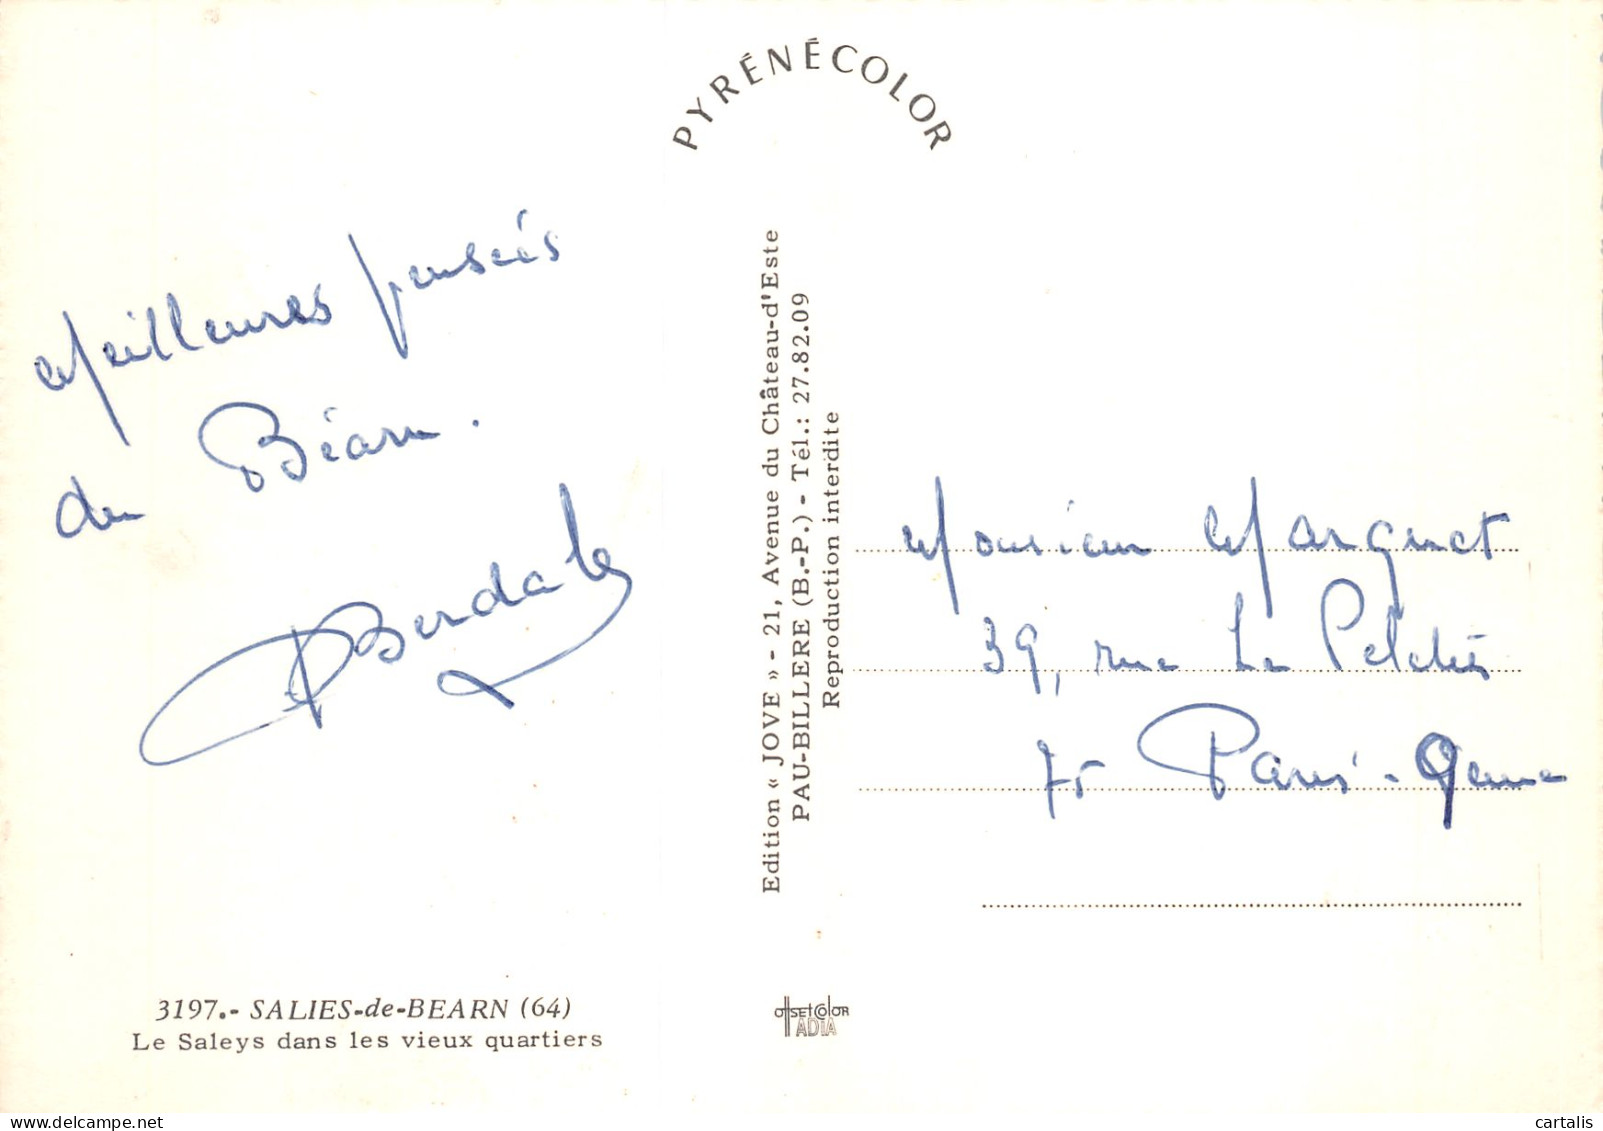 PYRÉNÉCOLOR
Meilleures pensées
du Béarn.
Edition « JOVE » - 21, Avenue du Château-d'Este
PAU-BILLERE (B.-P.) - Tél.: 27.82.09
Reproduction interdite
Monsieur Marquet
39, rue Le Peletier
75 Paris - 9eme
3197.- SALIES-de-BEARN (64)
Le Saleys dans les vieux quartiers
OffSETCOlOR
IADIA
cartalis